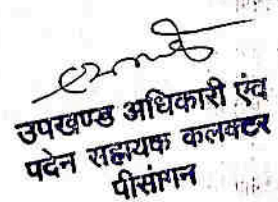 उपखण्ड अधिकारी एंव
पदेन सहायक कलक्टर
पीसांगन